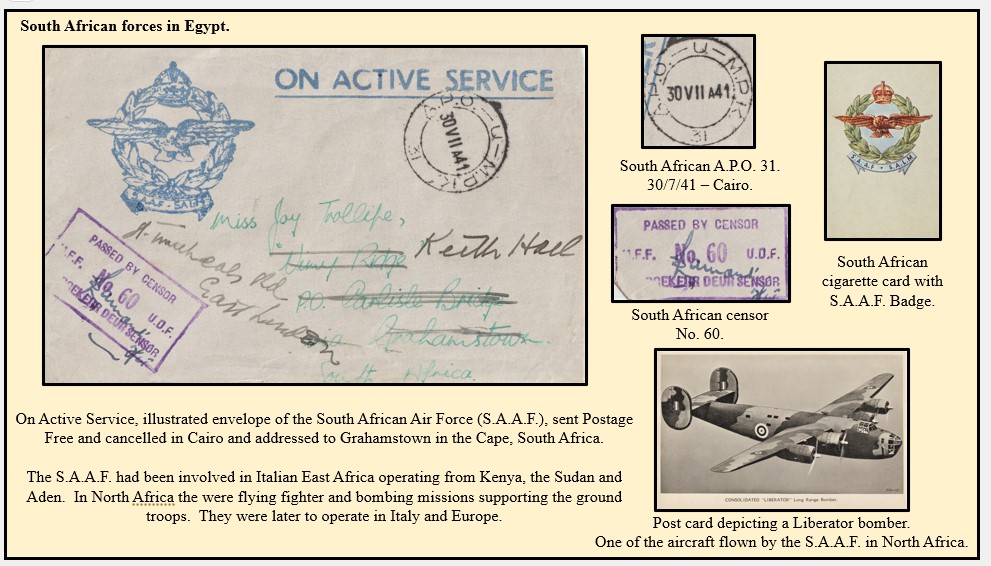 South African forces in Egypt.
ON ACTIVE SERVICE
A.P.O.-U-M.P.K.
30 VII A41
31
S.A.A.F - S.A.L.M
Miss Joy Trollipe,
Keith Hall
P.O. Carlisle Bridge
East London
Grahamstown.
South Africa.
PASSED BY CENSOR
U.F.F. No. 60 U.D.F.
GOEKEUR DEUR SENSOR
A.P.O.-U-M.P.K.
30 VII A41
31
South African A.P.O. 31.
30/7/41 – Cairo.
PASSED BY CENSOR
U.F.F. No. 60 U.D.F.
GOEKEUR DEUR SENSOR
South African censor
No. 60.
S.A.A.F - S.A.L.M
South African
cigarette card with
S.A.A.F. Badge.
On Active Service, illustrated envelope of the South African Air Force (S.A.A.F.), sent Postage
Free and cancelled in Cairo and addressed to Grahamstown in the Cape, South Africa.
The S.A.A.F. had been involved in Italian East Africa operating from Kenya, the Sudan and
Aden. In North Africa the were flying fighter and bombing missions supporting the ground
troops. They were later to operate in Italy and Europe.
CONSOLIDATED "LIBERATOR" Long Range Bomber.
Post card depicting a Liberator bomber.
One of the aircraft flown by the S.A.A.F. in North Africa.